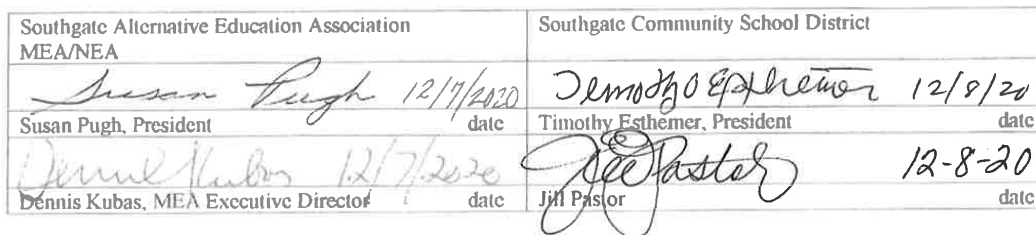 Southgate Alternative Education Association
MEA/NEA
Southgate Community School District
Susan Pugh 12/7/2020
Timothy O Esthemer 12/8/20
Susan Pugh, President date
Timothy Esthemer, President date
Dennis Kubas 12/7/2020
Jill Pastor 12-8-20
Dennis Kubas, MEA Executive Director date
Jill Pastor date